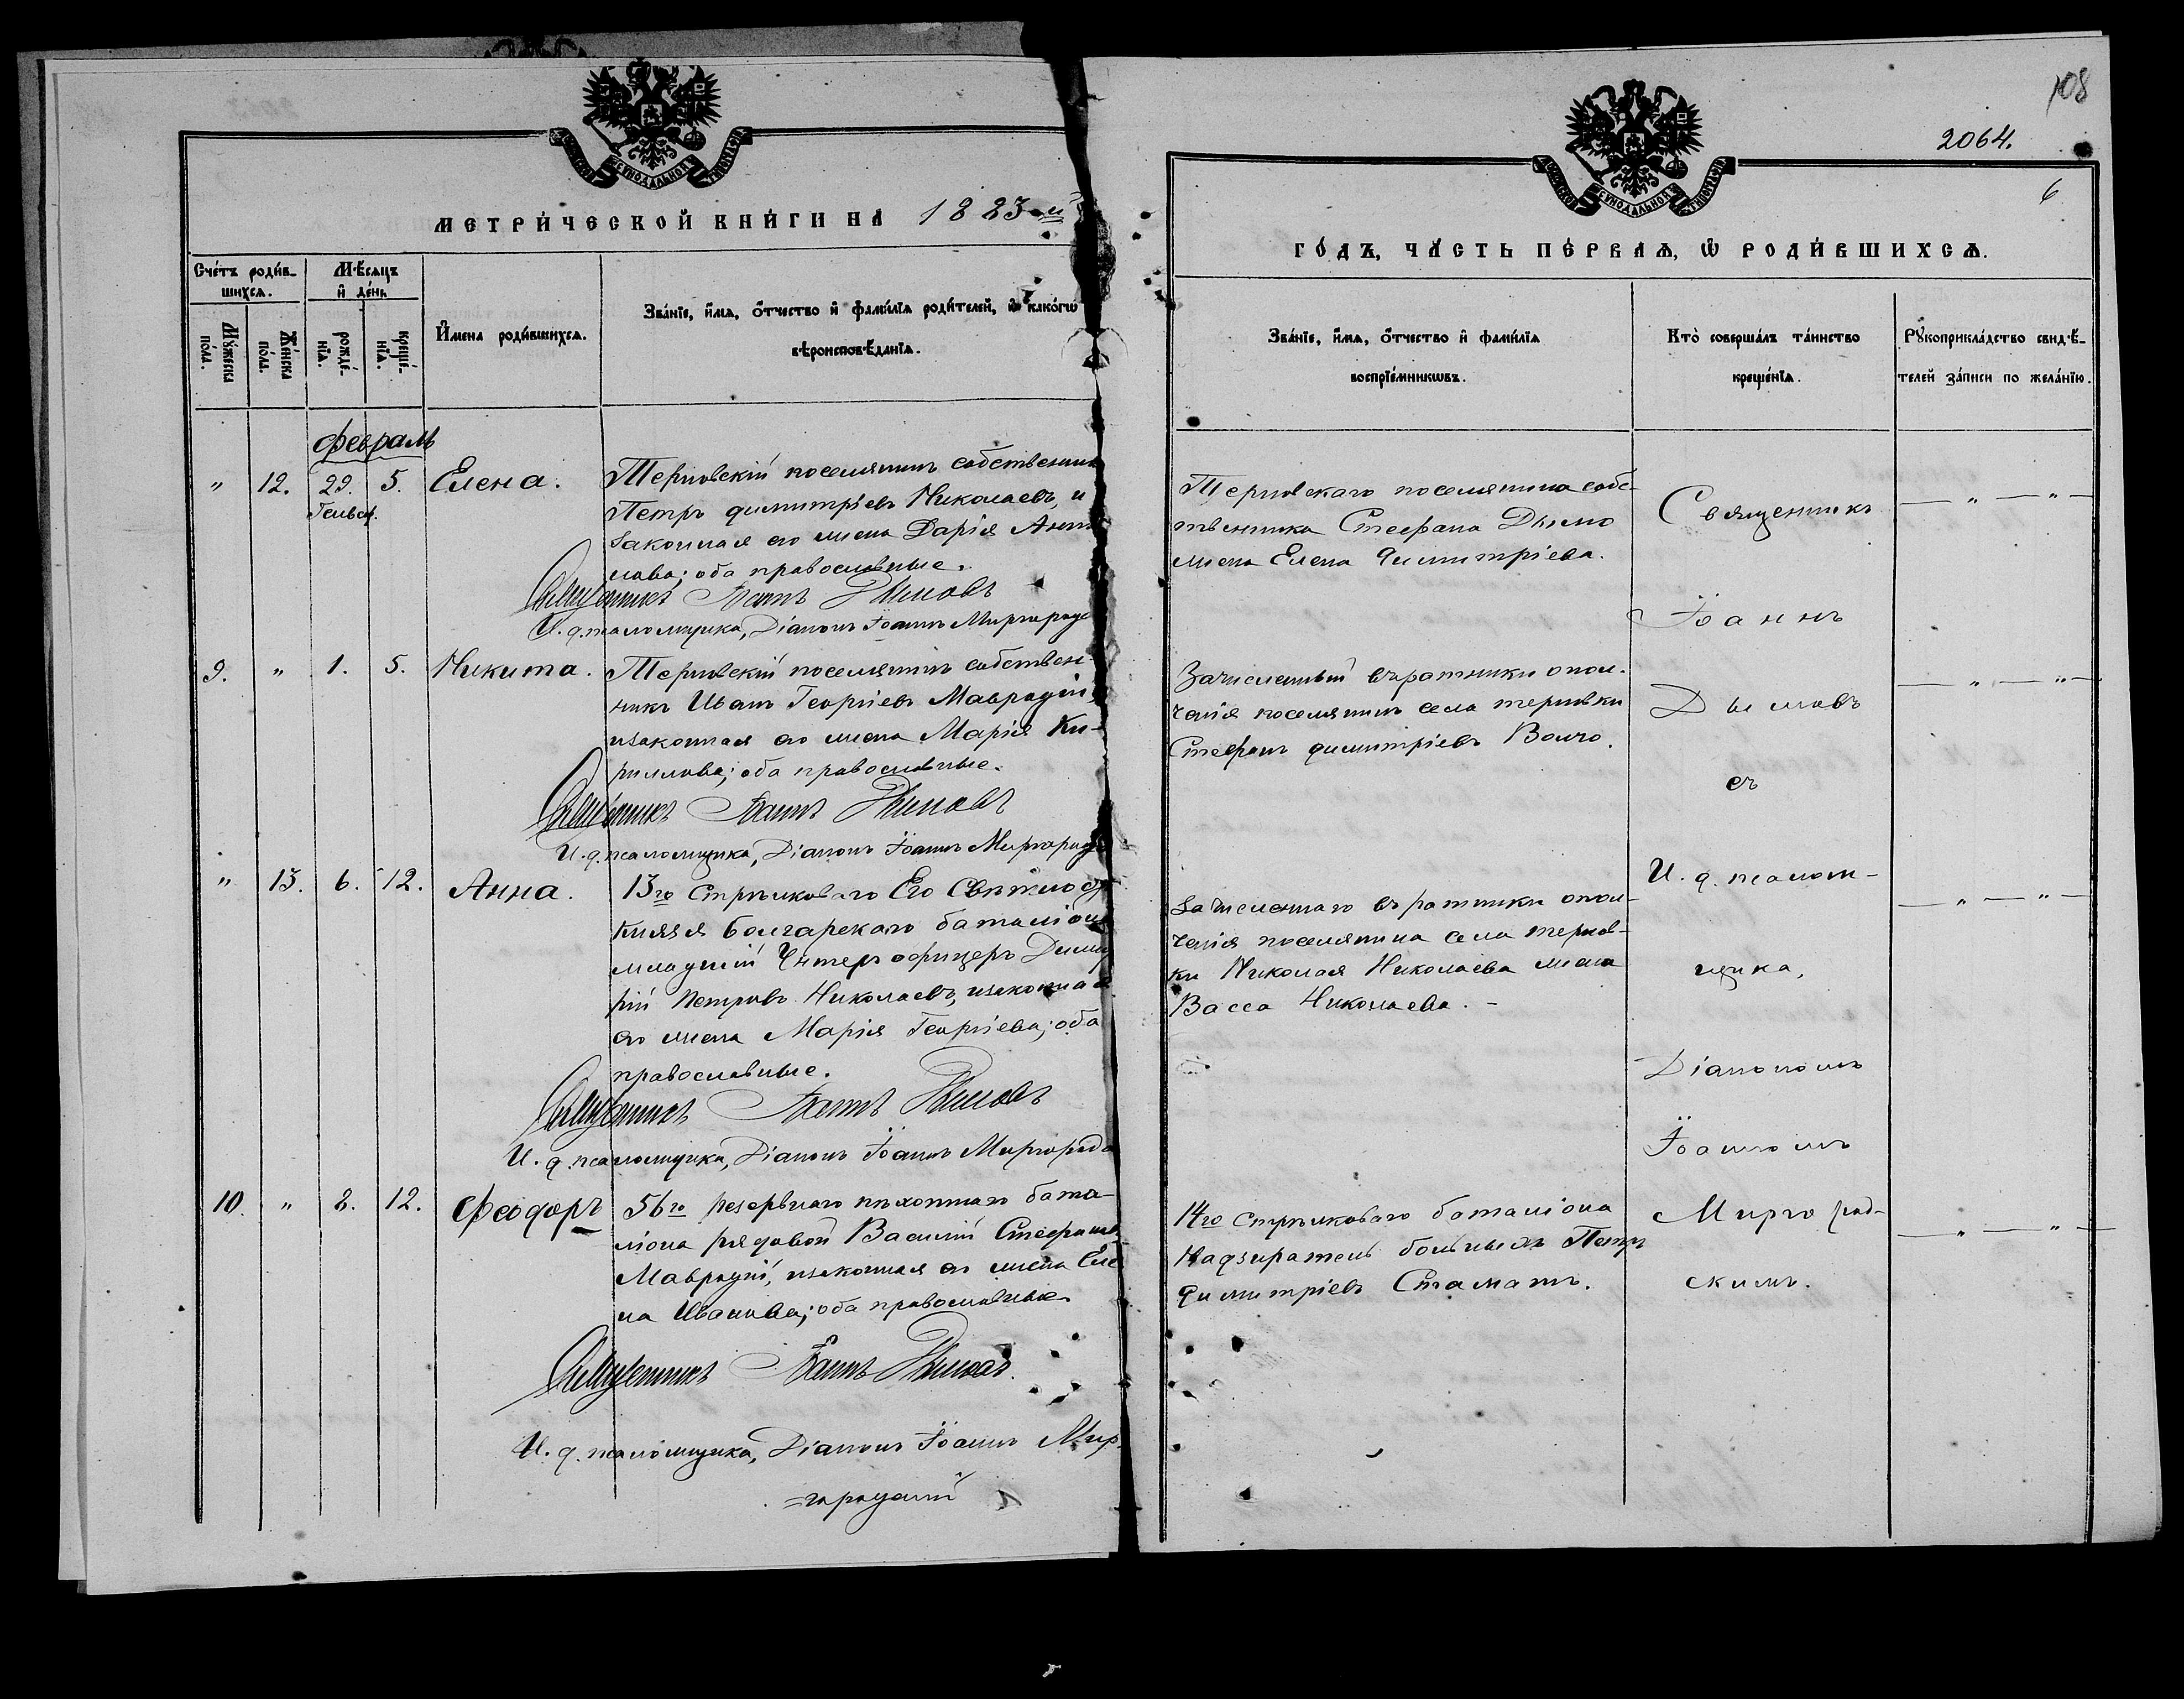 108
2064.
6
МЕТРИ́ЧЕСКОЙ КНИ́ГИ НА̀ 1883-й
ГО́ДЪ, ЧА́СТЬ ПЕ́РВАѦ, Ѽ РОДИ́ВШИХСѦ.
Сче́тъ роди́в-
шихсѧ.
Мѣ́сѧцъ
и҆ де́нь
Мꙋ́жеска
по́ла.
Же́нска
по́ла.
рожде́-
нїѧ.
креще́-
нїѧ.
И҆мена̀ роди́вшихсѧ.
Зва́нїе, и҆́мѧ, ѻ҆́тчество и҆ фами́лїѧ роди́телей, и҆ како́гѡ
вѣроисповѣ́данїѧ.
Зва́нїе, и҆́мѧ, ѻ҆́тчество и҆ фами́лїѧ
воспрїе́мникѡвъ.
Кто̀ соверша́лъ та́инство
креще́нїѧ.
Рꙋкоприкла́дство свидѣ́-
телей за́писи по жела́нїю.
Февраль
" 12. 29. 5. Елена.
Генвар.
Терновскій поселянинъ собственникъ
Петръ Димитріевъ Николаевъ, и
законная его жена Дарія Анто
нова; оба православные.
Священникъ Іоаннъ Дымовъ
И. д. псаломщика, Діаконъ Іоаннъ Миргород
Терновскаго поселянина собс-
твенника Стефана Дымо
жена Елена Димитріева.
Священникъ
Іоаннъ
9. " 1. 5. Никита.
Терновскій поселянинъ собствен-
никъ Иванъ Георгіевъ Мавродій
и законная его жена Марія Ки-
риллова; оба православные.
Священникъ Іоаннъ Дымовъ
И. д. псаломщика, Діаконъ Іоаннъ Миргород
Зачисленный въ ратники опол-
ченія поселянинъ села Терновки
Стефанъ Димитріевъ Волчо.
Дымовъ
съ
" 13. 6. 12. Анна.
13го Стрѣлковаго Его Свѣтлос
Князя Болгарскаго баталіона
младшій Унтеръ офицеръ Дими
рій Петровъ Николаевъ, и законная
его жена Марія Георгіева; оба
православные.
Священникъ Іоаннъ Дымовъ
И. д. псаломщика, Діаконъ Іоаннъ Миргородс
Зачисленнаго въ ратники опол-
ченія поселянина села Тернов-
ки Николая Николаева жена
Васса Николаева. -
И. д. псалом-
щика,
Діакономъ
Іоанномъ
10. " 8. 12. Феодоръ
56го резервнаго пѣхотнаго бата-
ліона рядовой Василій Стефановъ
Мавродій, и законная его жена Еле
на Иванова; оба православные
Священникъ Іоаннъ Дымовъ.
И. д. псаломщика, Діаконъ Іоаннъ Мир-
=городскій
14го Стрѣлковаго баталіона
Надзиратель больныхъ Петръ
Димитріевъ Стаматъ.
Миргород-
скимъ.